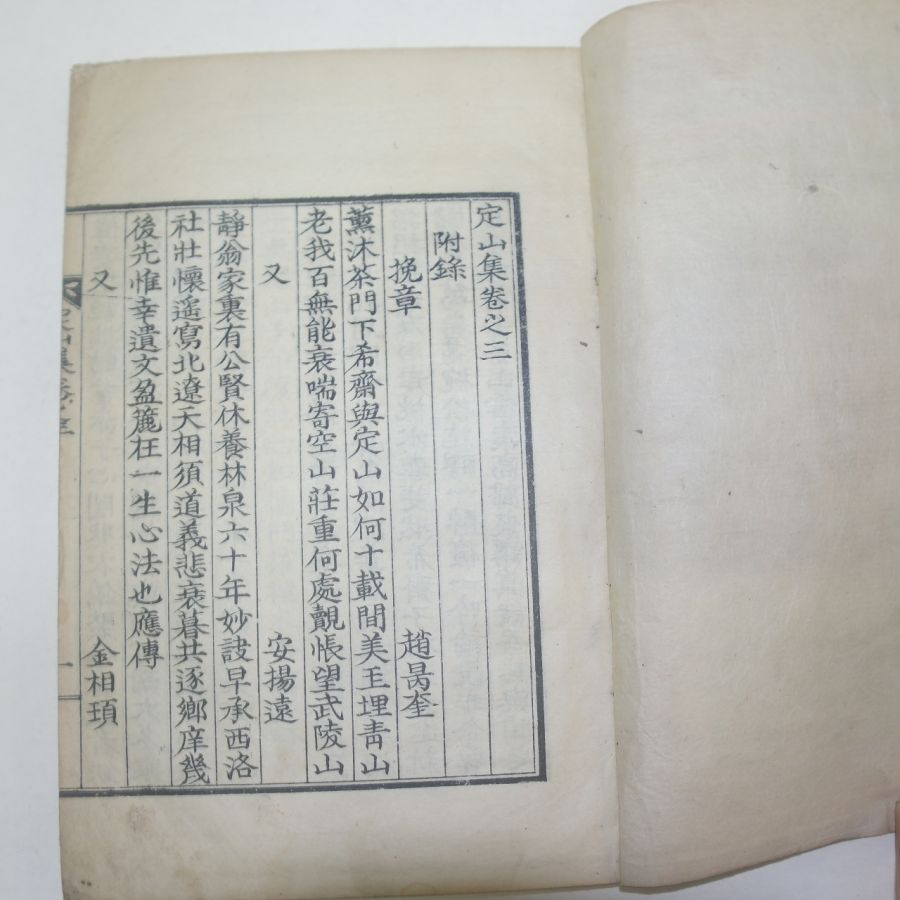 定山集卷之三
附錄
挽章 趙昺奎
薰沐茶門下希齋與定山如何十載間美玉埋靑山
老我百無能衰喘寄空山莊重何處覿悵望武陵山
又 安揚遠
靜翁家裏有公賢休養林泉六十年妙詖早承西洛
社壯懷遥寫北遼天相須道義悲衰暮共逐鄉庠幾
後先惟幸遺文盈簏在一生心法也應傳
又 金相頊
定山集卷之三
一